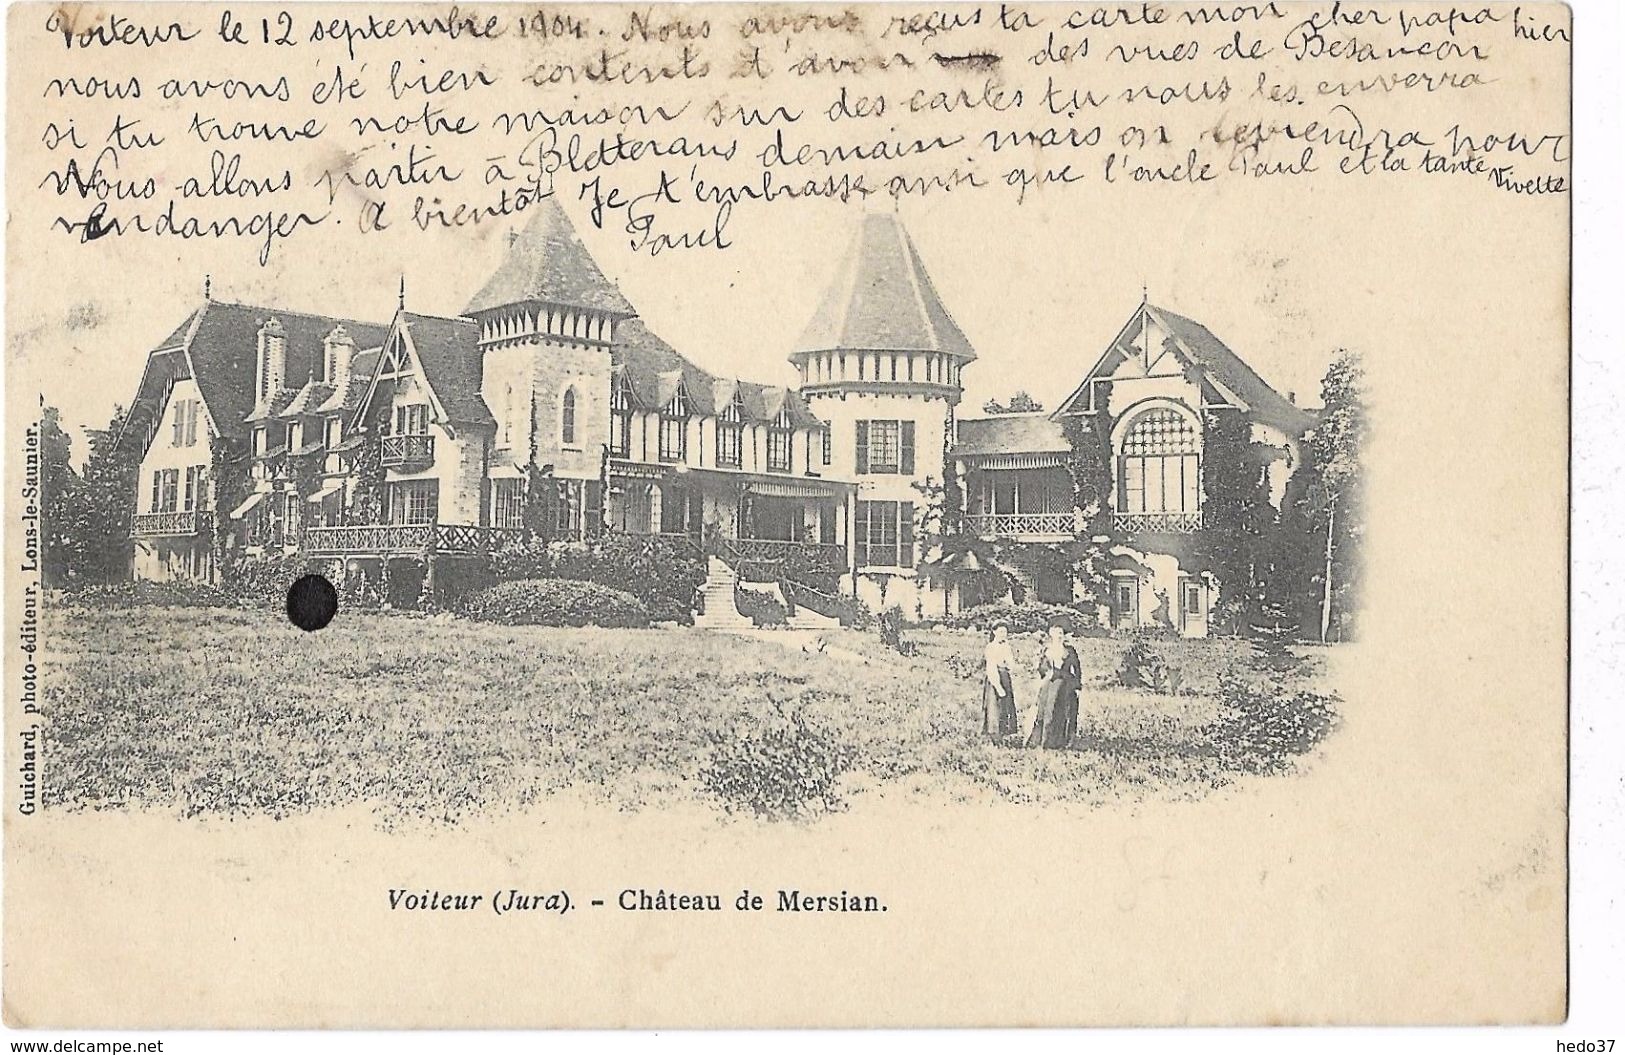 Voiteur le 12 septembre 1904. Nous avons reçus ta carte mon cher papa hier
nous avons été bien contents d'avoir des vues de Besancon
si tu trouve notre maison sur des cartes tu nous les enverra
Nous allons partir à Bletterans demain mais on reviendra pour
vendanger. A bientôt Je t'embrasse ansi que l'oncle Paul et la tante Vivette
Paul
Guichard, photo-éditeur, Lons-le-Saunier.
Voiteur (Jura). - Château de Mersian.
www.delcampe.net
hedo37